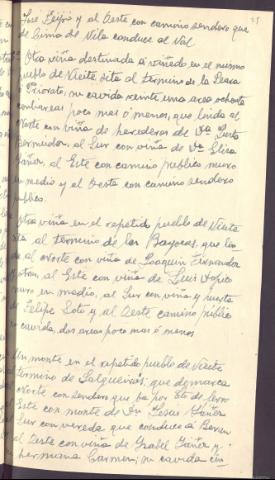 José Feijóo y al Oeste con camino sendero que
de Cima de Vila conduce al Val
Otra viña destinada a viñedo en el mismo
pueblo de Vieite sita al termino de la
Priorato, su cavida veinte una area ochenta
centiareas poco mas ó menos, que linda al
Norte con viña de herederos de Dª
Bermudez, al Sur con viña de Dª Elisa
al Este con camino publico muro
en medio y al Oeste con camino sendero
publico.
Otra viña en el repetido pueblo de Vieite
sita al termino de las que lin-
da al Norte con viña de Joaquin Fernandez
al Este con viña de Luis
muro en medio, al Sur con viña y
de Felipe Soto y al Oeste camino publico
su cavida, dos areas poco mas ó menos
Un monte en el repetido pueblo de Vieite
termino de Salgueiros; que demarca
Norte con sendero que ba por
Este con monte de Dn
Sur con vereda que conduce á
al Oeste con viña de Isabel y
hermana Carmen; su cavida